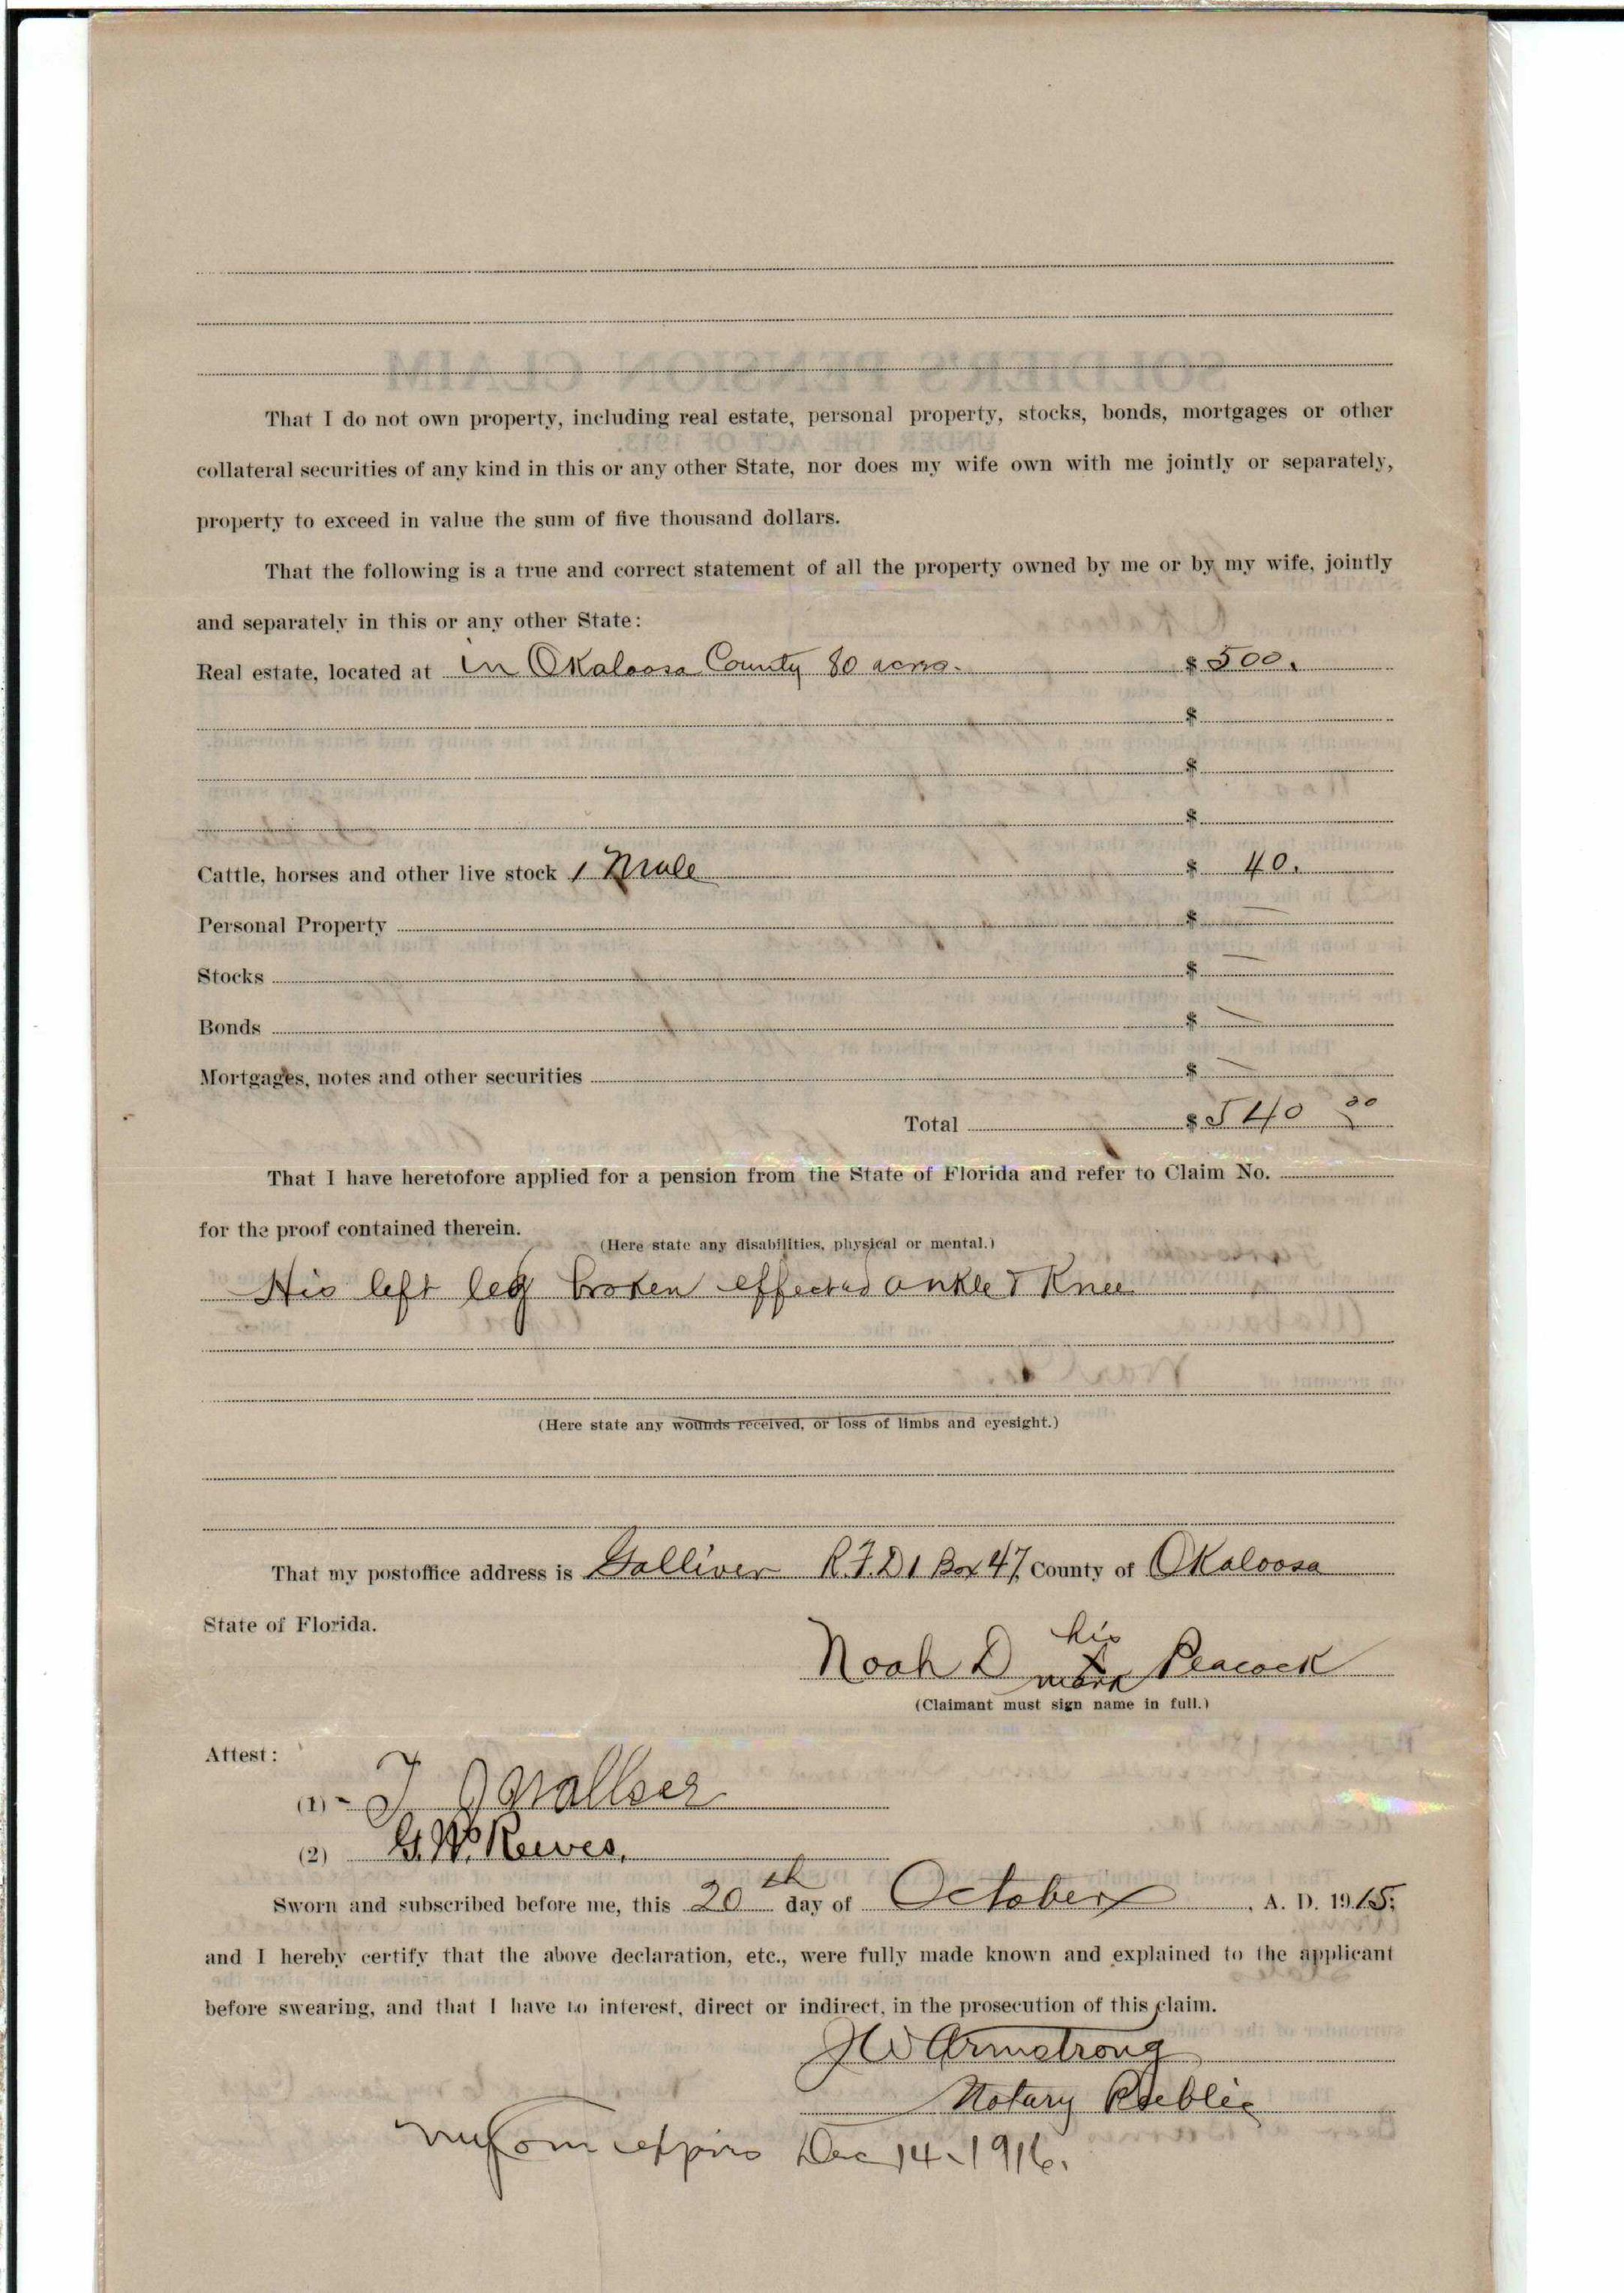 That I do not own property, including real estate, personal property, stocks, bonds, mortgages or other
collateral securities of any kind in this or any other State, nor does my wife own with me jointly or separately,
property to exceed in value the sum of five thousand dollars.
That the following is a true and correct statement of all the property owned by me or by my wife, jointly
and separately in this or any other State:
Real estate, located at in Okaloosa County 80 acres. $ 500.
$
$
$
Cattle, horses and other live stock 1 Mule $ 40.
Personal Property $ —
Stocks $ —
Bonds $ —
Mortgages, notes and other securities $ —
Total $ 540 00
That I have heretofore applied for a pension from the State of Florida and refer to Claim No.
for the proof contained therein.
(Here state any disabilities, physical or mental.)
His left leg broken effected ankle & Knee
(Here state any wounds received, or loss of limbs and eyesight.)
That my postoffice address is Galliver R.F.D 1 Box 47 County of Okaloosa
State of Florida.
his
Noah D X Peacock
mark
(Claimant must sign name in full.)
Attest:
(1) - T J
(2) G. W. Reeves,
Sworn and subscribed before me, this 20th day of October, A. D. 1915;
and I hereby certify that the above declaration, etc., were fully made known and explained to the applicant
before swearing, and that I have no interest, direct or indirect, in the prosecution of this claim.
J W Armstrong
Notary Public
my Com expires Dec 14. 1916.